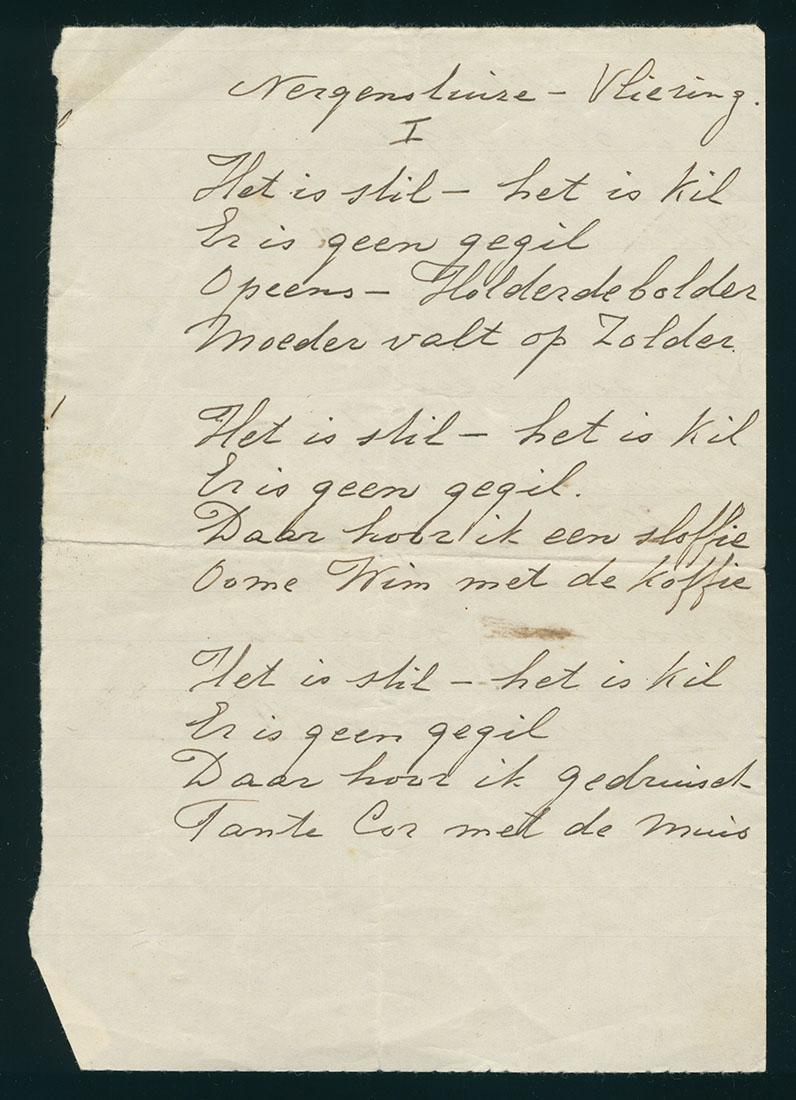 Nergenshuize - Vliering.
I
Het is stil - het is kil
Er is geen gegil
Opeens - Holderdebolder
Moeder valt op Zolder.
Het is stil - het is kil
Er is geen gegil.
Daar hoor ik een sloffie
Oome Wim met de koffie
Het is stil - het is kil
Er is geen gegil
Daar hoor ik gedruisch
Tante Cor met de muis